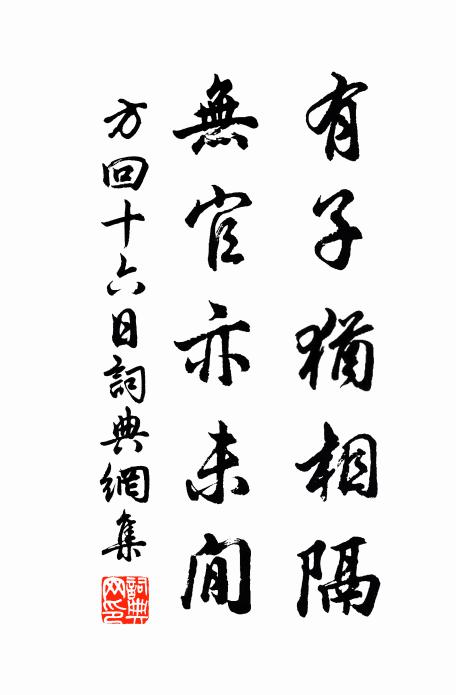 有子猶相隔
無官亦未閒
方回十六日詞典網集
詞典网印